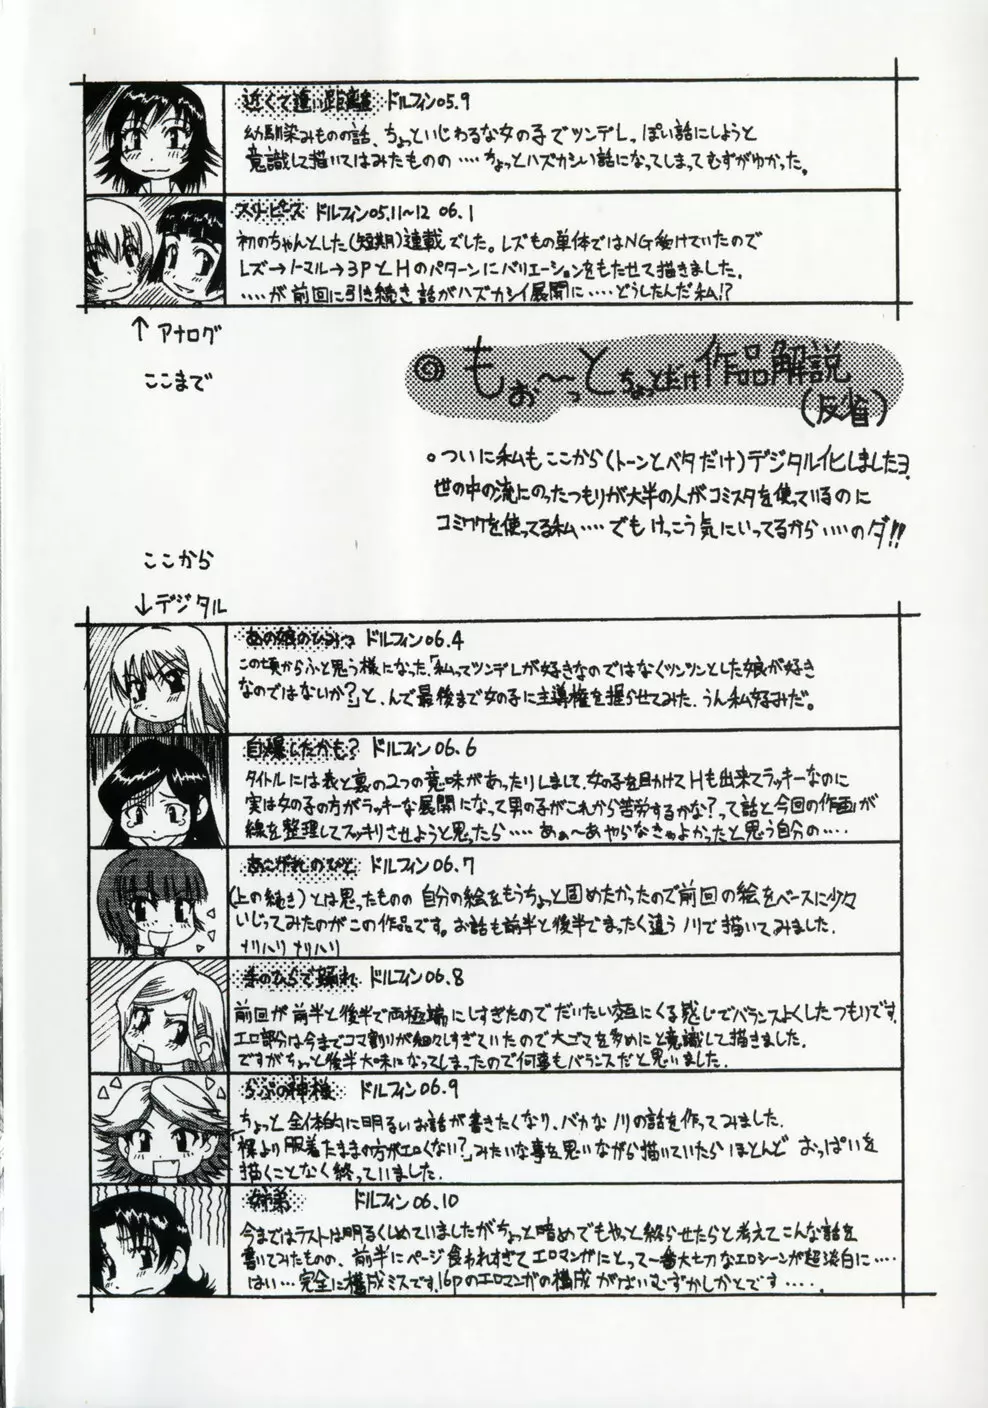 近くて遠い距離 ドルフィン05.9
幼馴染みものの話、ちょっといじわるな女の子でツンデレっぽい話にしようと
意識して描いてはみたものの‥‥ちょっとハズカシい話になってしまってむずがゆかった。
スリーピース ドルフィン05.11〜12 06.1
初のちゃんとした(短期)連載でした。レズもの単体ではNG受けていたので
レズ→ノーマル→3PとHのパターンにバリエーションをもたせて描きました.
‥‥が前回に引き続き話がハズカシイ展開に‥‥どうしたんだ私!?
↑アナログ
ここまで
◎もぉ〜っとちょっとだけ作品解説
(反省)
。ついに私もここから(トーンとベタだけ)デジタル化しましたヨ.
世の中の流にのったつもりが大半の人がコミスタを使っているのに
コミワクを使ってる私‥‥でもけっこう気にいってるから‥‥のダ!!
ここから
↓デジタル
あの娘のひみつ ドルフィン06.4
この頃からふと思う様になった.「私ってツンデレが好きなのではなくツンツンとした娘が好き
なのではないか?」と、んで最後まで女の子に主導権を握らせてみた.うん私好みだ。
自爆したかも? ドルフィン06.6
タイトルには表と裏の2つの意味があったりしまして.女の子を目かけてHも出来てラッキーなのに
実は女の子の方がラッキーな展開になって男の子がこれから苦労するかな?って話と今回の作画が
線を整理してスッキリさせようと思ったら‥‥あぁ〜あやらなきゃよかったと思う自分の‥‥
あこがれのひと ドルフィン06.7
(上の続き)とは思ったものの自分の絵をもうちょっと固めたかったので前回の絵をベースに少々
いじってみたのがこの作品です。お話も前半と後半でまったく違うノリで描いてみました.
メリハリメリハリ
手のひらで踊れ ドルフィン06.8
前回が前半と後半で両極端にしすぎたのでだいたい交互にくる感じでバランスよくしたつもりです.
エロ部分は今までコマ割りが細々しすぎていたので大ゴマを多めにと意識して描きました.
ですがちょっと後半大味になってしまったので何事もバランスだと思いました.
らぶの神様 ドルフィン06.9
ちょっと全体的に明るいお話が書きたくなり、バカなノリの話を作ってみました.
「裸より服着たままの方がエロくない?」みたいな事を思いながら描いていたらほとんどおっぱいを
描くことなく終っていました.
姉弟 ドルフィン06.10
今まではラストは明るくしめていましたがちょっと暗めでもやっと終らせたらと考えてこんな話を
書いてみたものの、前半にページ食われすぎてエロマンガにとって一番大切なエロシーンが超淡白に‥‥
はい‥完全に構成ミスです.16pのエロマンガの構成がばいむずかしかとです‥‥.